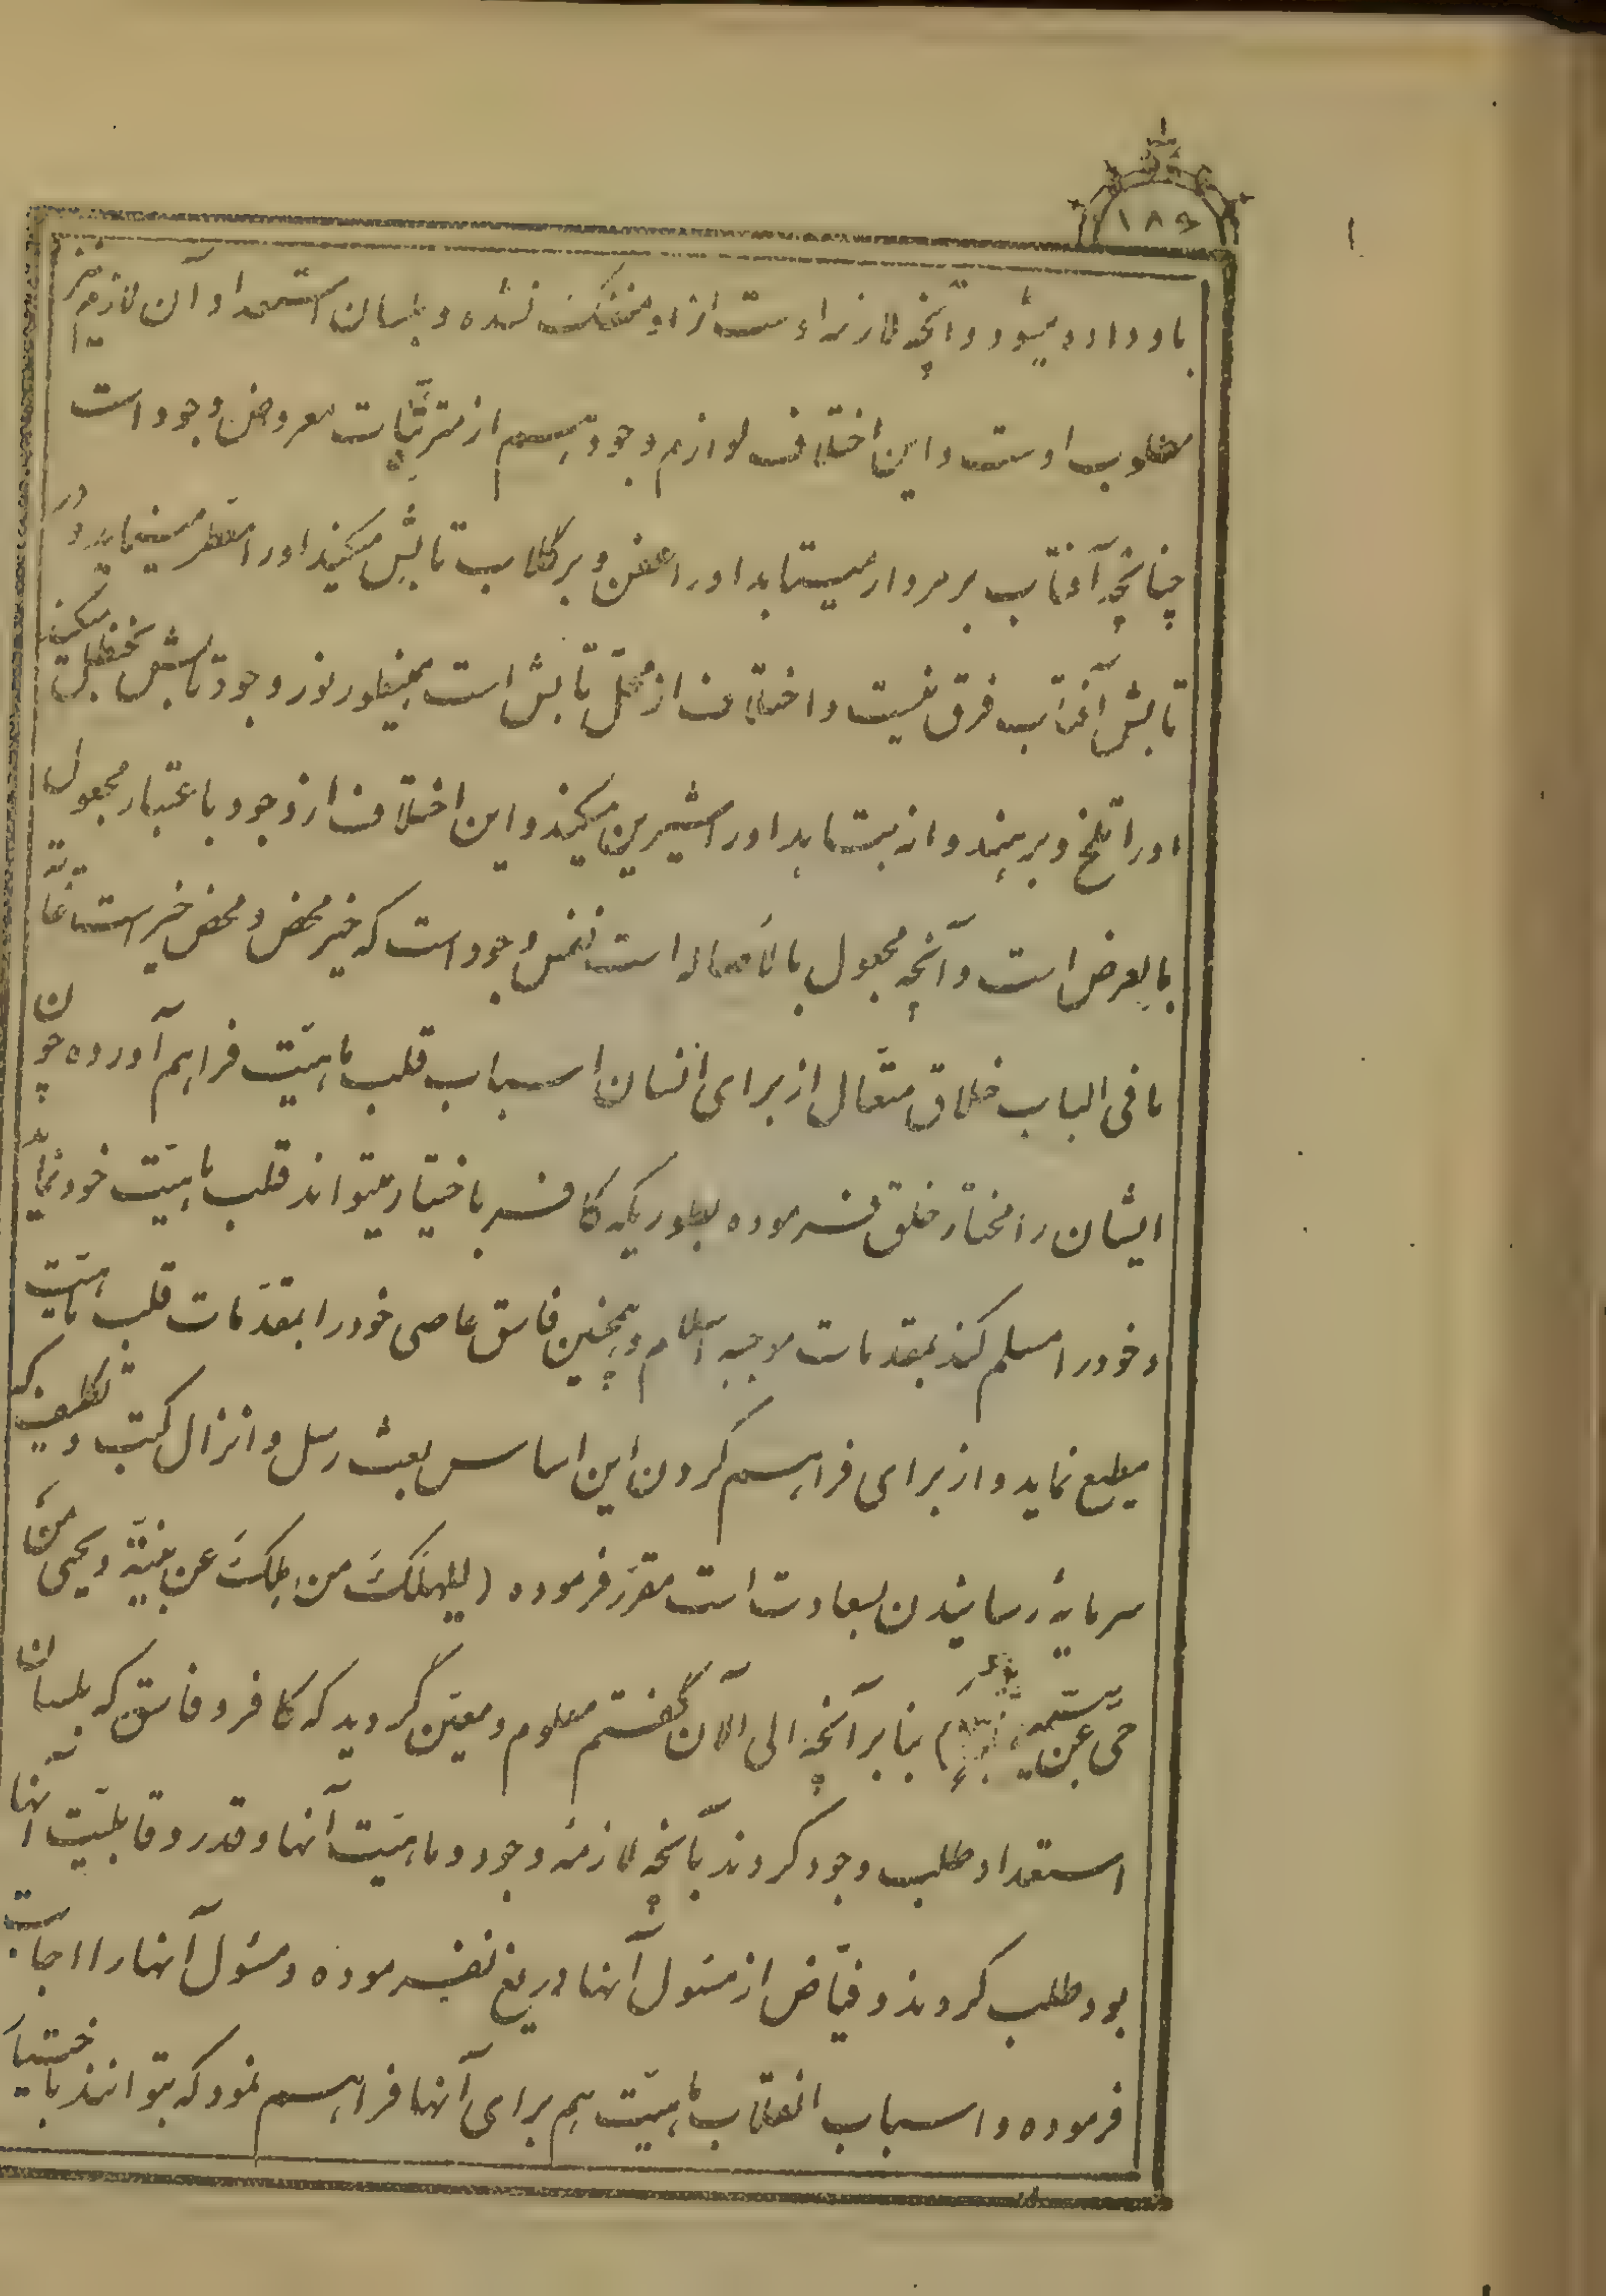 ۱۸۶
باو داده میشود و آنچه لازمهٔ اوست از او منفک نشده و بلسان استعداد آن لازم نیز
مطلوب اوست و این اختلاف لوازم وجود هم از مترتّبات معروض وجود است
چنانچه آفتاب بر مردار میتابد او را عفن و بر گلاب تابش میکند او را معطر مینماید و در
تابش آفتاب فرق نیست و اختلاف از محلّ تابش است همینطور نور وجود تابش بحنظل میکند
او را تلخ و بر هندوانه میتابد او را شیرین میکند و این اختلاف از وجود باعتبار مجعول
بالعرض است و آنچه مجعول بالأصاله است نفس وجود است که خیر محض و محض خیر است غایة
ما فی الباب خلاق متعال از برای انسان اسباب قلب ماهیّت فراهم آورده چون
ایشان را مختار خلق فرموده بطوریکه کافر باختیار میتواند قلب ماهیّت خود نماید
و خود را مسلم کند بمقدمات موجبه اسلام و همچنین فاسق عاصی خود را بمقدّمات قلب ماهیّت
مطیع نماید و از برای فراهم کردن این اساس بعث رسل و انزال کتب و تکلیف که
سرمایهٔ رسانیدن بسعادت است مقرّر فرموده (لیهلکَ من هلکَ عن بینّة و یحیی منَ
حیّ عن بیّنة) بنابر آنچه الی الآن گفتم معلوم و معیّن گردید که کافر و فاسق که بلسان
استعداد طلب وجود کردند بآنچه لازمهٔ وجود و ماهیّت آنها و قدر و قابلیّت آنها
بود طلب کردند و فیّاض از مسئول آنها دریغ نفرموده و مسئول آنها را اجابت
فرموده و اسباب انقلاب ماهیّت هم برای آنها فراهم نمود که بتوانند باختیار